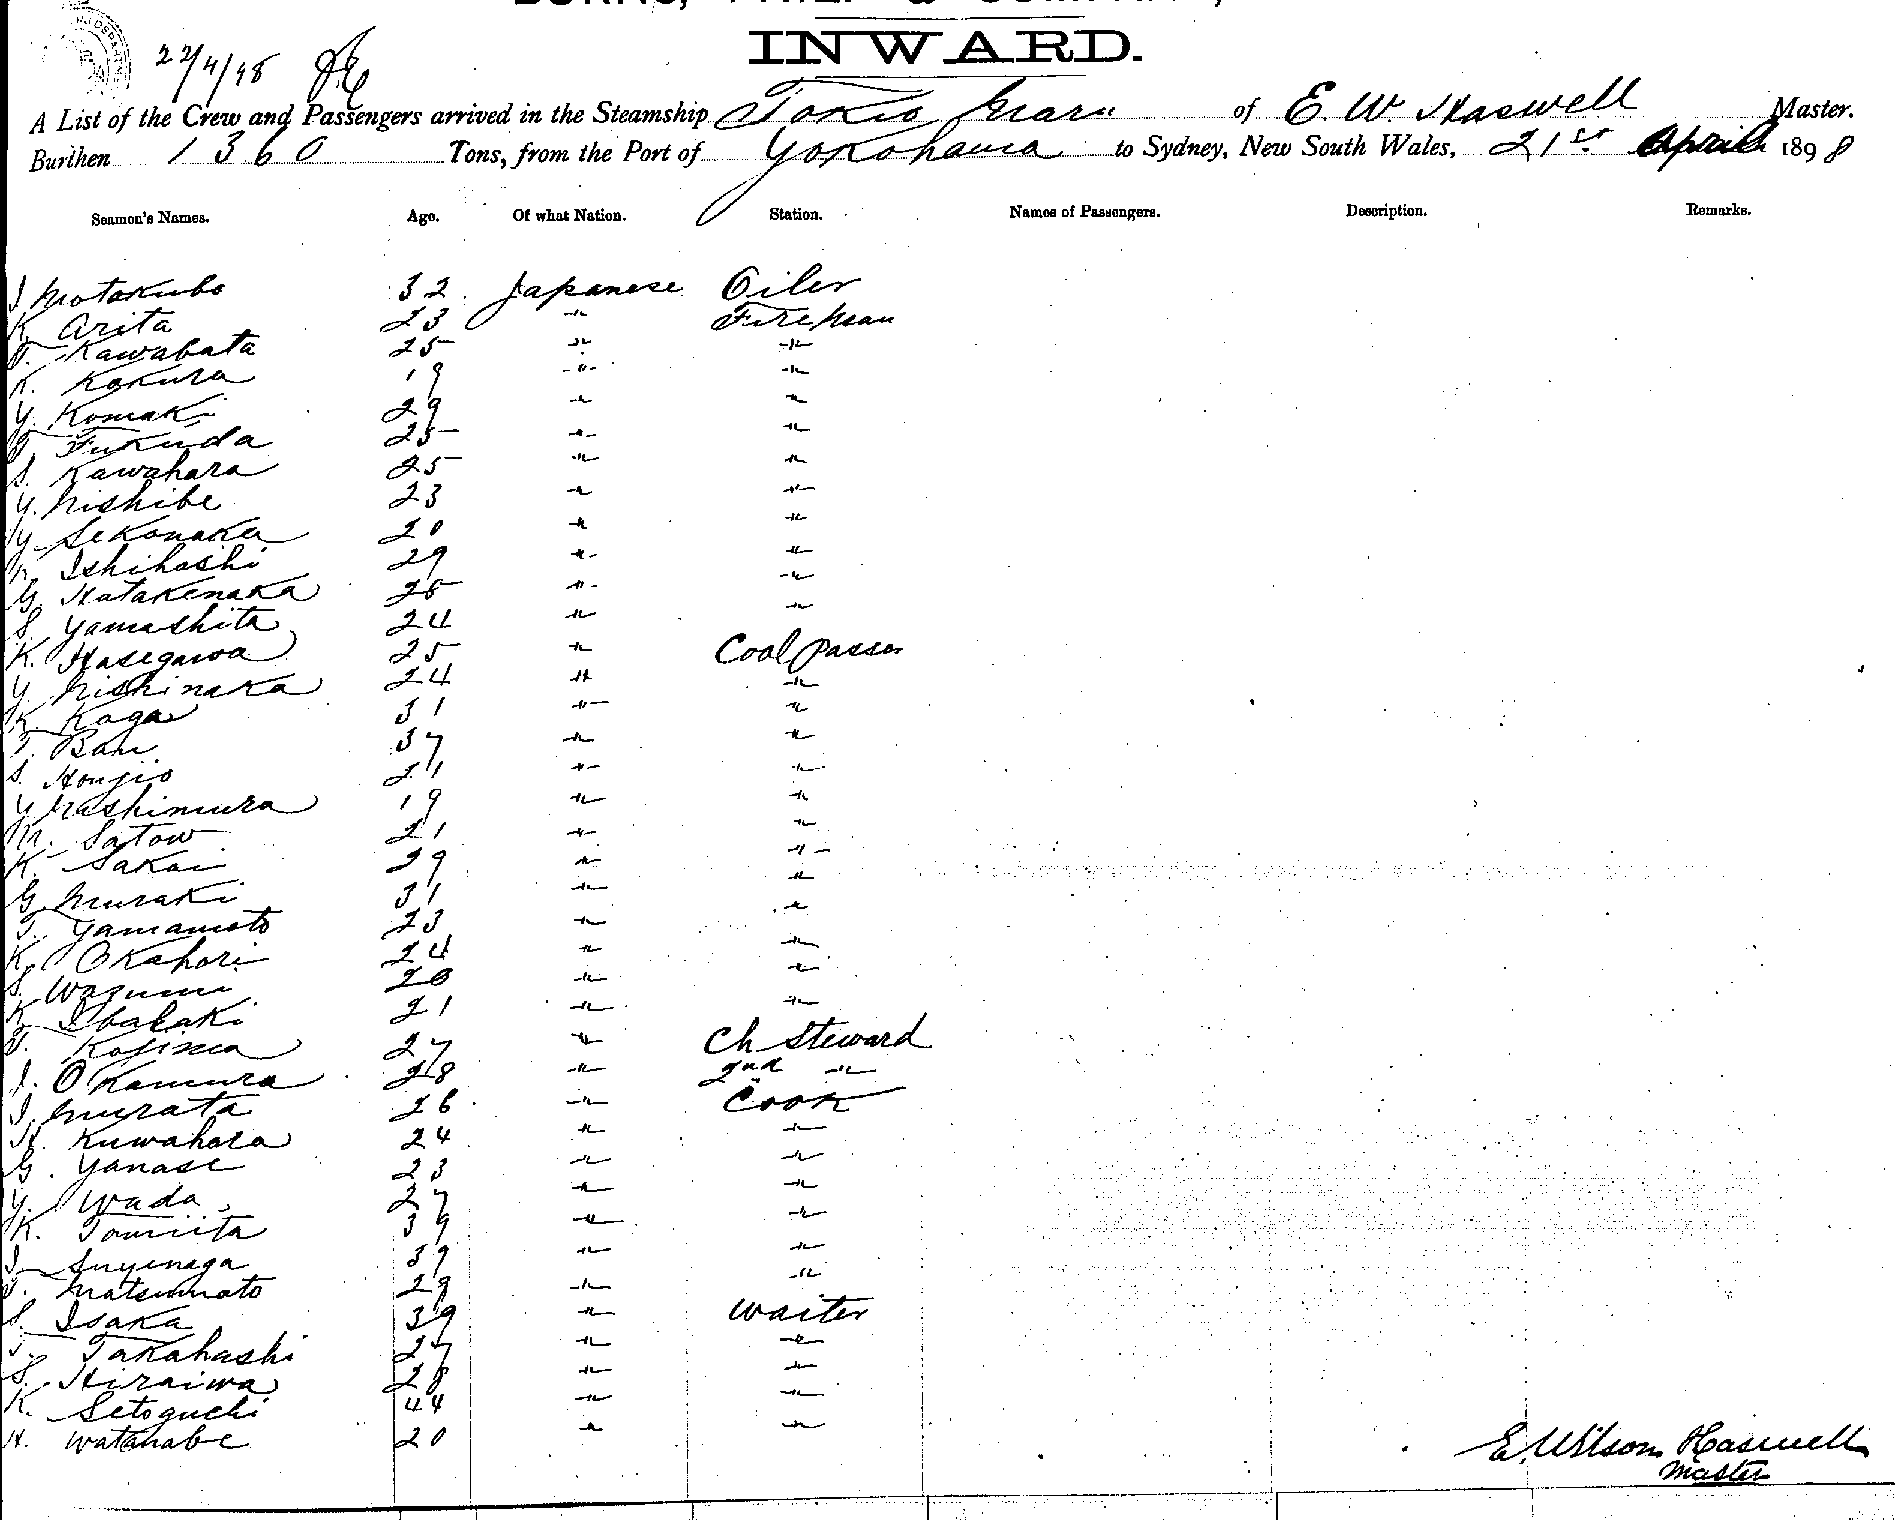 INWARD.
22/4/98
A List of the Crew and Passengers arrived in the Steamship Tokio Maru of E. W. Haswell Master.
Burthen 1360 Tons, from the Port of Yokohama to Sydney, New South Wales, 21st April 1898
Seamen's Names. Age. Of what Nation. Station. Names of Passengers. Description. Remarks.
I Motokubo 32 Japanese Oiler
K. Arita 23 " Fireman
T. Kawabata 25 " "
K. Kokura 19 " "
Y. Komaki 29 " "
T Fukuda 25 " "
S. Kawahara 25 " "
Y. Nishibe 23 " "
Y Sekonaka 20 " "
Ishibashi 29 " "
G Hatakenaka 25 " "
S. Yamashita 24 " "
K. Hasegawa 25 " Coal passer
Y Nishinaka 24 " "
K. Koga 31 " "
T. Ban 37 " "
S. Honjio 21 " "
Y Mashimura 19 " "
M. Satow 21 " "
K. Sakai 29 " "
G Muraki 31 " "
T. Yamamoto 23 " "
K. Okahori 24 " "
S. Wazumi 20 " "
K Ibalaki 21 " "
T. Kojima 27 " Ch Steward
I. Okamura 28 " 2nd "
I. Murata 26 " Cook
H. Kuwahara 24 " "
G. Yanase 23 " "
Y. Wada 27 " "
K. Tomiita 39 " "
I Suyenaga 39 " "
T. Matsumoto 29 " "
S. Isaka 39 " Waiter
T. Takahashi 27 " "
S. Hiraiwa 28 " "
K. Setoguchi 44 " "
H. Watanabe 20 " "
E. Wilson Haswell
Master